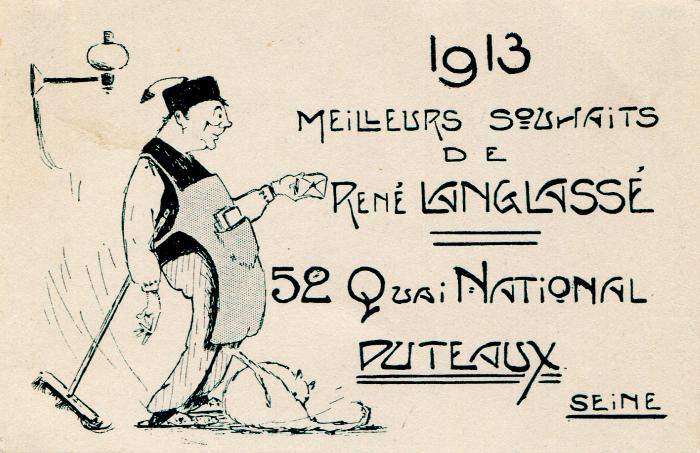 1913
MEILLEURS SOUHAITS
DE
RENÉ LANGLASSÉ
52 QUAI NATIONAL
PUTEAUX
SEINE